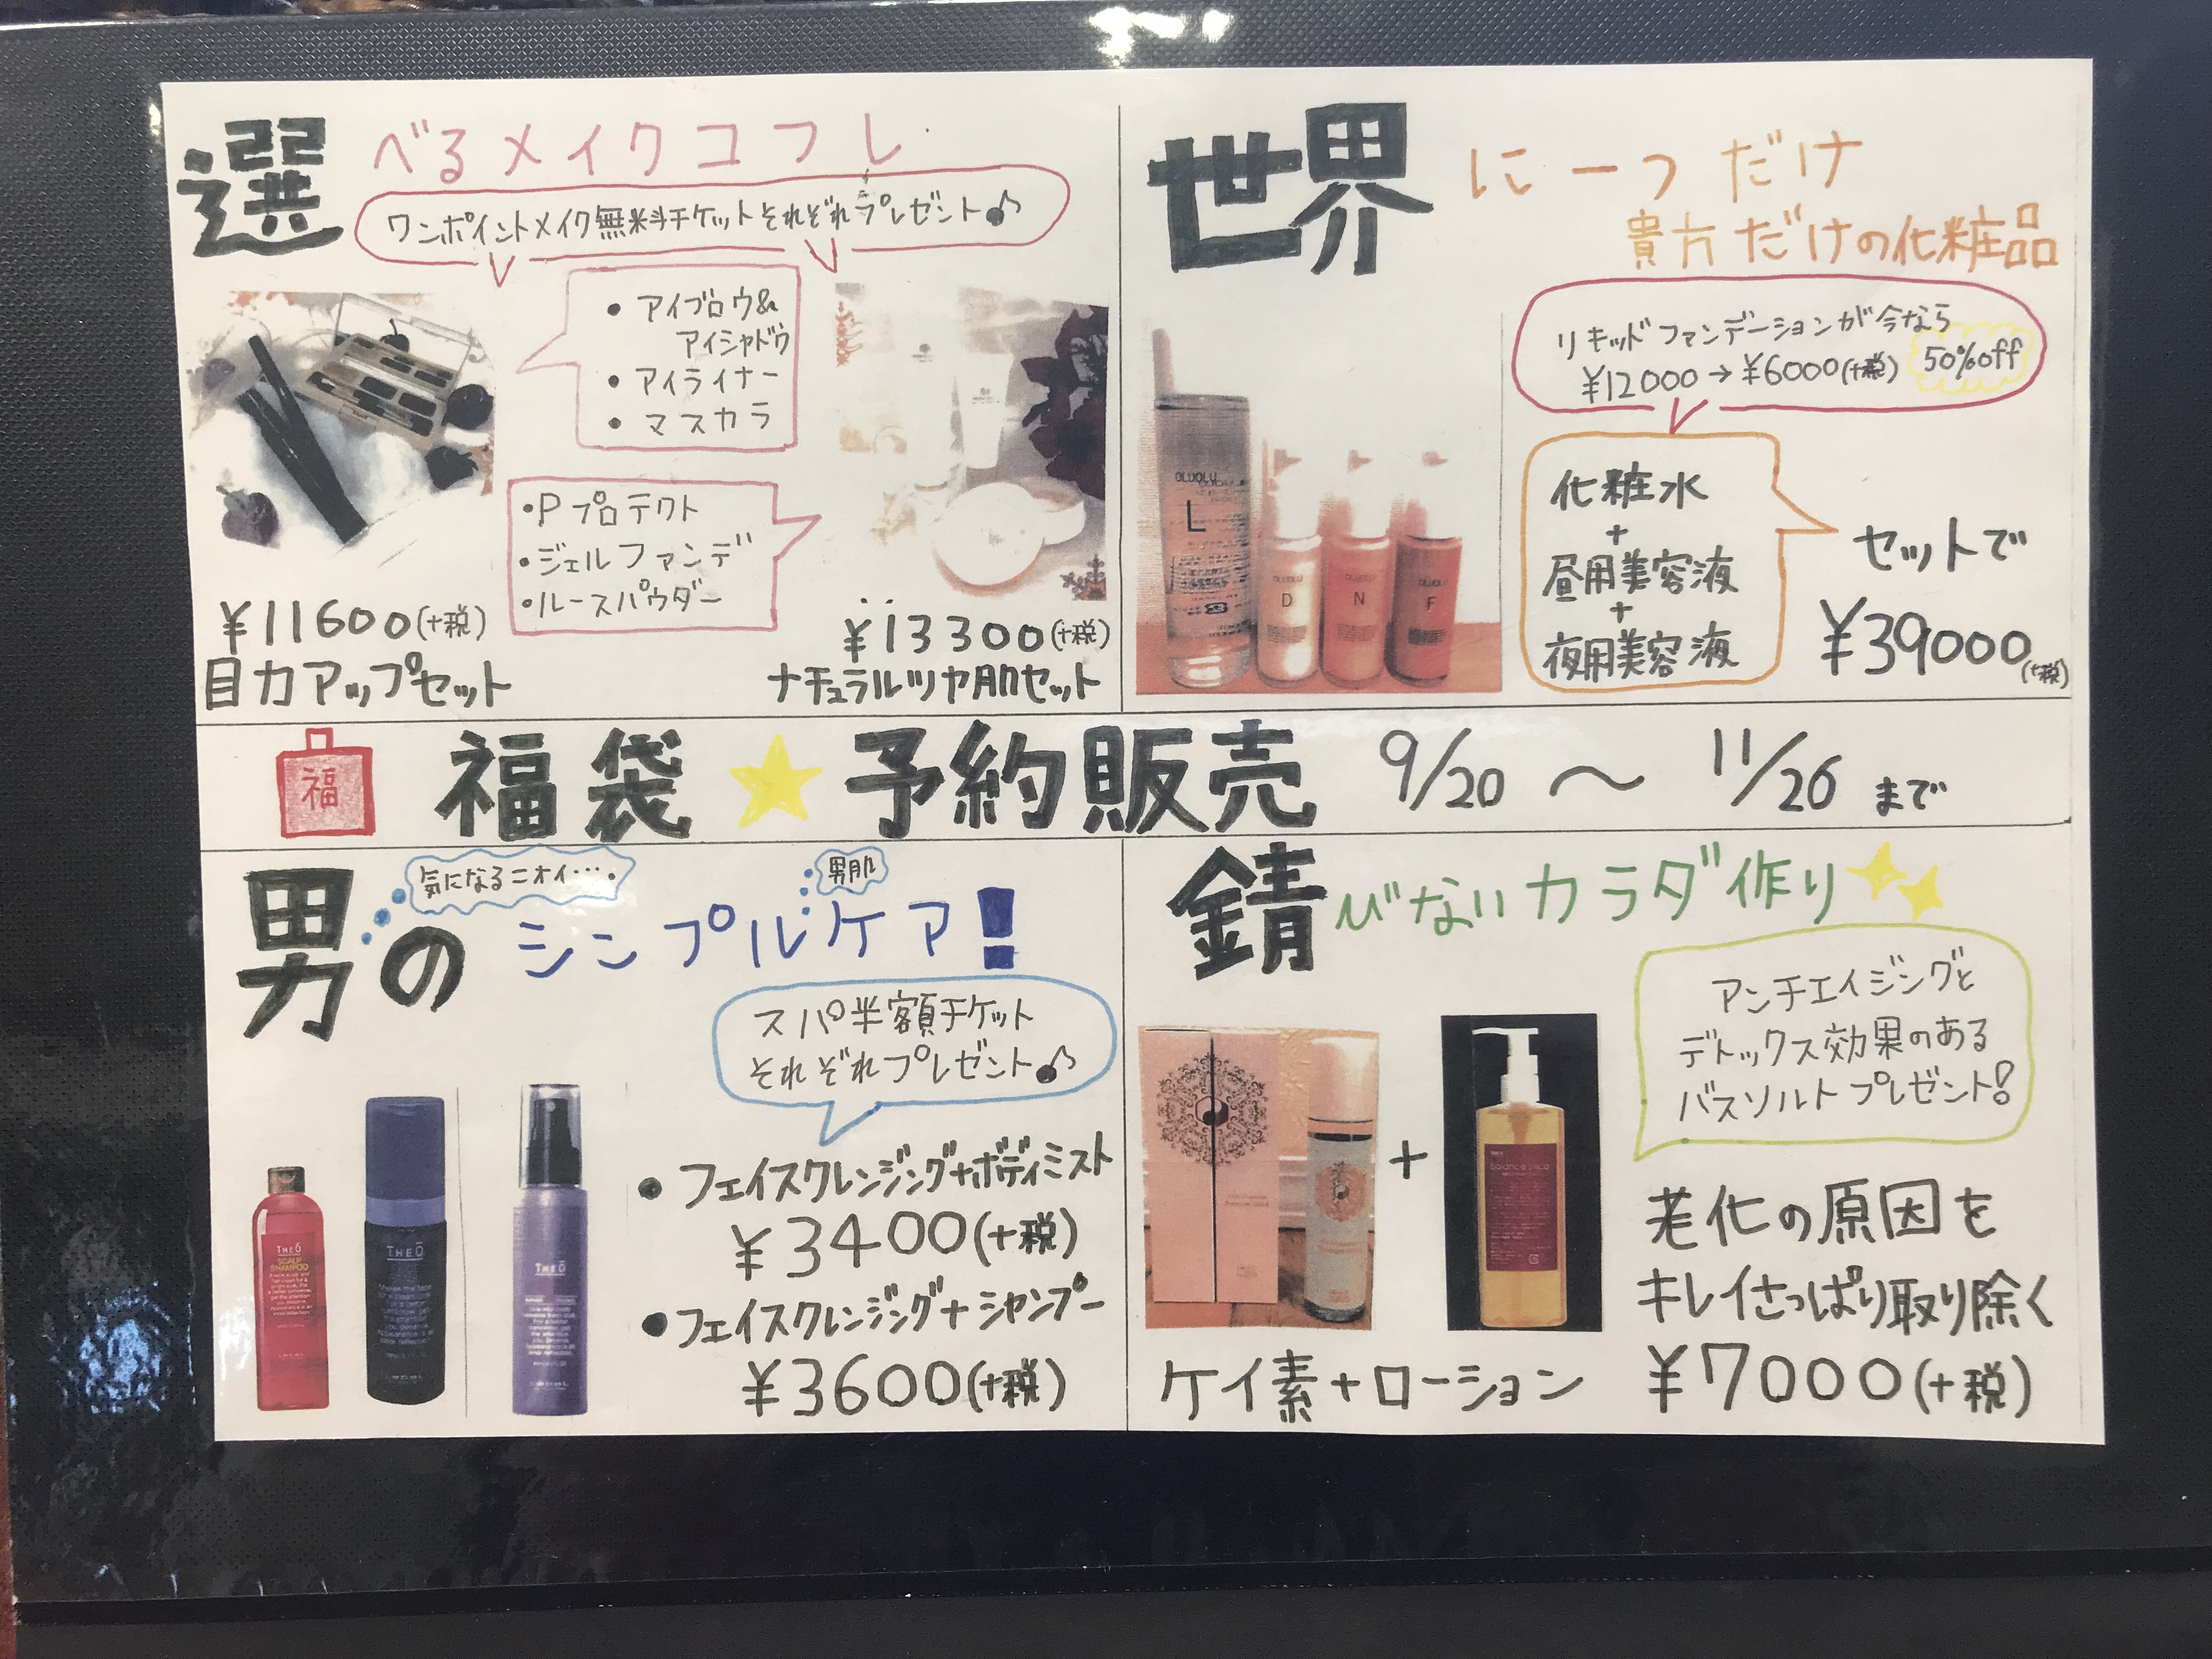 選べるメイクコフレ
ワンポイントメイク無料チケットそれぞれプレゼント♪
• アイブロウ&
アイシャドウ
• アイライナー
• マスカラ
• Pプロテクト
• ジェルファンデ
• ルースパウダー
¥11600(+税)
目力アップセット
¥13300(+税)
ナチュラルツヤ肌セット
世界に一つだけ
貴方だけの化粧品
リキッドファンデーションが今なら
¥12000→¥6000(+税) 50%off
OLUOLU
L
OLUOLU
D
OLUOLU
N
OLUOLU
F
化粧水
+
昼用美容液
+
夜用美容液
セットで
¥39000(+税)
福 福袋★予約販売 9/20〜11/26まで
気になるニオイ….
男肌
男のシンプルケア!
スパ半額チケット
それぞれプレゼント♪
THEO
SCALP
SHAMPOO
THEO
THEO
• フェイスクレンジング+ボディミスト
¥3400(+税)
• フェイスクレンジング+シャンプー
¥3600(+税)
錆びないカラダ作り
アンチエイジングと
デトックス効果のある
バスソルトプレゼント!
+
老化の原因を
キレイさっぱり取り除く
ケイ素+ローション ¥7000(+税)